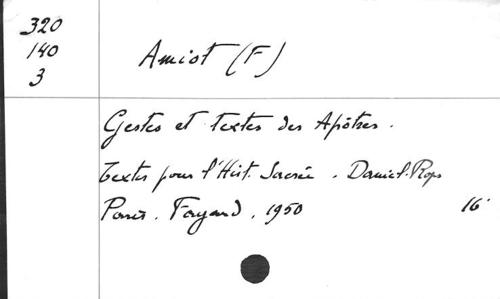 320
140
3
Amiot (F)
Gestes et textes des Apôtres.
Textes pour l'Hist. Sacrée. Daniel-Rops
Paris. Fayard. 1950
16°